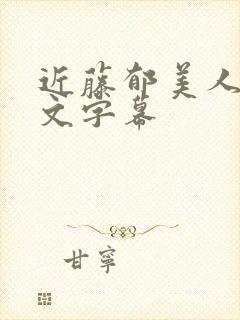 近藤郁美人
文字幕
甘寧